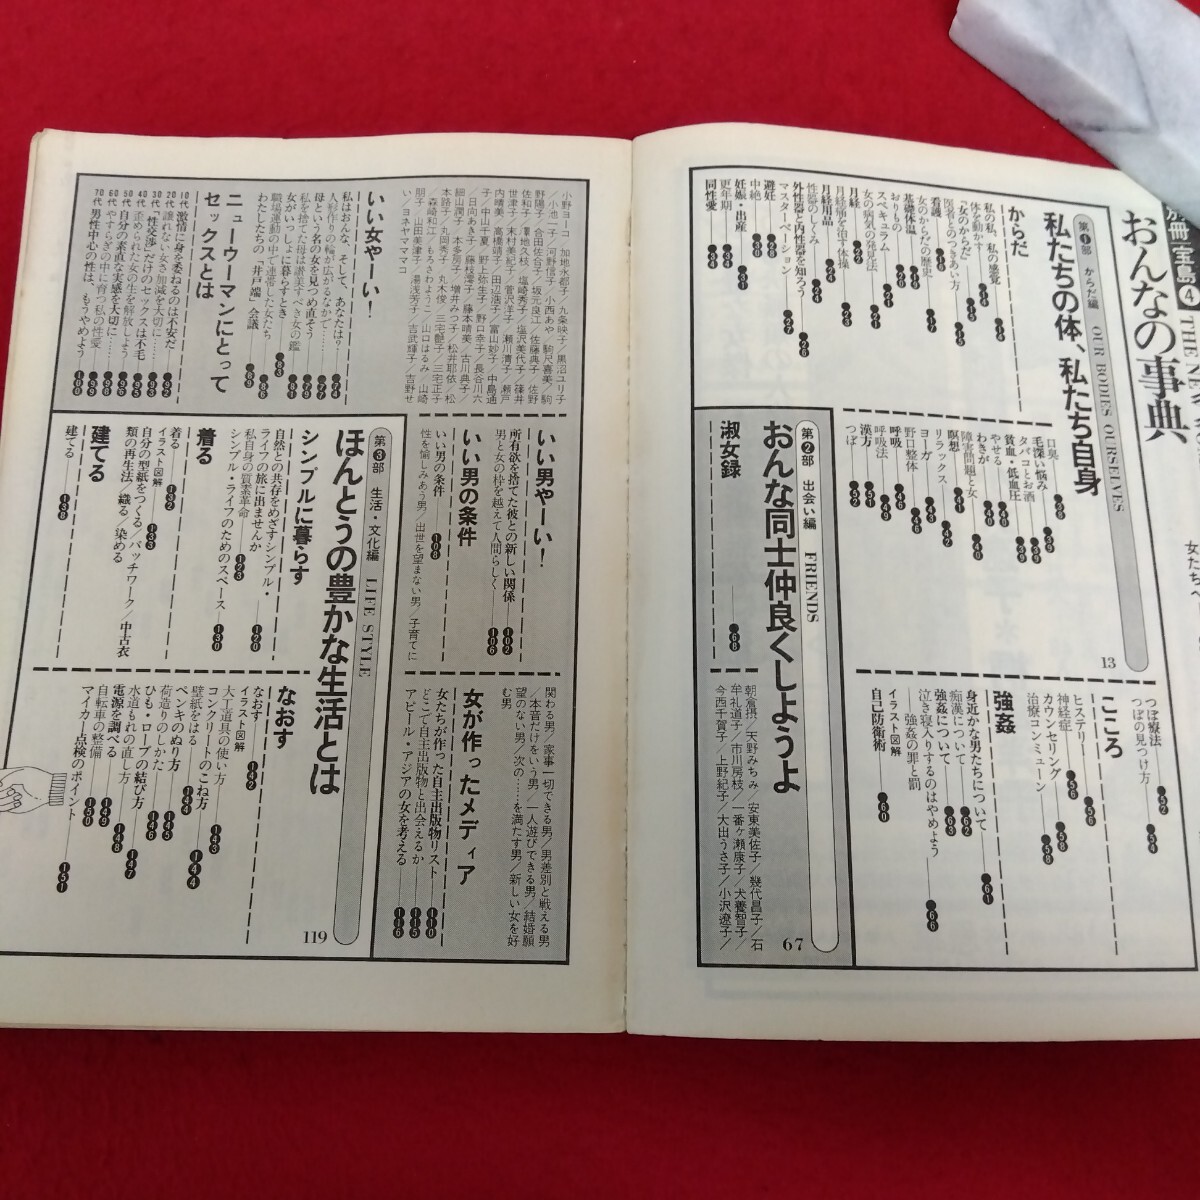 別冊宝島④
おんなの事典
女たちへ
第1部 からだ編 OUR BODIES OURSELVES
私たちの体、私たち自身
13
からだ
私の私、私の感覚 14
体を動かす 15
「女のからだ」
医者とのつきあい方 15
看護 17
女のからだの歴史
基礎体温 19
おりもの 20
スペキュラム 21
女の病気の発見法 21
月経 22
月経痛を治す体操 23
月経用品 24
性器のしくみ 24
外性器と内性器を知ろう 26
マスターベーション 27
避妊 28
中絶 30
妊娠・出産 31
更年期 34
同性愛 34
口臭 38
毛深い悩み 39
タバコとお酒 39
貧血・低血圧 39
やせる 40
わきが 40
障害問題と女 40
瞑想 42
リラックス 43
野口整体 46
呼吸 48
呼吸法 49
漢方 51
つぼ 52
つぼ療法 52
つぼの見つけ方 54
こころ
ヒステリー 56
神経症 56
カウンセリング 58
治療コンミューン 58
強姦
身近かな男たちについて 61
痴漢について 62
強姦について 63
泣き寝入りするのはやめよう
——強姦の罪と罰 66
イラスト図解
自己防衛術 60
第2部 出会い編 FRIENDS
おんな同士仲良くしようよ
67
淑女録 68
朝倉摂/天野みちみ/安東美佐子/幾代昌子/石
牟礼道子/市川房枝/一番ヶ瀬康子/犬養智子/
今西千賀子/上野紀子/大出うさ子/小沢遼子/
小野ヨーコ/加地永都子/九条映子/黒沼ユリ子
/小池一子/河野信子/小西あや/駒尺喜美/駒
野陽子/合田佐和子/坂元良江/佐藤典子/佐野
世津子/末村美紀子/菅沢洋子/瀬川清子/瀬戸
内晴美/高橋靖子/田辺浩子/富山妙子/中島通
子/中山千夏/野上弥生子/野口幸子/長谷川六
/日向あき子/藤枝澪子/藤本晴美/古川典子/
細山潤子/本多房子/増井みつ子/松井耶依/松
本路子/丸岡秀子/丸木俊/三宅艶子/三宅正子
/森崎和江/もろさわようこ/山口はるみ/山崎
朋子/山田美津子/湯浅芳子/吉武輝子/吉野せ
い/ヨネヤママコ
いい女やーい!
私はおんな、そして、あなたは? 74
人形作りの輪が広がるなかで 77
母という名の女を見つめ直そう 79
私を捨てた母は讃美すべき女の鑑 81
女がいっしょに暮らすとき 83
職場運動の中で連帯した女たち 86
わたしたちの「井戸端」会議 89
ニューウーマンにとって
セックスとは
10代 激情に身を委ねるのは不安だ 92
20代 譲れない女さ加減を大切に 93
30代 「性交渉」だけのセックスは不毛 95
40代 歪められた女の生を解放しよう 96
50代 自分の素直な実感を大切に 98
60代 やすらぎの中に育つ私の性愛 99
70代 男性中心の性は、もうやめよう 100
いい男やーい!
所有欲を捨てた彼との新しい関係 102
男と女の枠を越えて人間らしく 106
いい男の条件
いい男の条件 108
性を愉しみあう男/出世を望まない男/子育てに
関わる男/家事一切できる男/男差別と戦える男
/本音だけをいう男/一人遊びできる男/結婚願
望のない男/次の……を満たす男/新しい女を好
む男/
女が作ったメディア
女たちが作った自主出版物リスト 110
どこで自主出版物と出会えるか 115
アピール・アジアの女を考える 116
第3部 生活・文化編 LIFE STYLE
ほんとうの豊かな生活とは
119
シンプルに暮らす
自然との共存をめざすシンプル・
ライフの旅に出ませんか 120
私自身の質素革命 123
シンプル・ライフのためのスペース 130
着る
着る 132
イラスト図解
自分の型紙をつくる/パッチワーク/中古衣
類の再生法/織る/染める 133
建てる
建てる 138
なおす
なおす 142
イラスト図解
大工道具の使い方 143
コンクリートのこね方 144
壁紙をはる
ペンキのぬり方 144
荷造りのしかた 145
ひも・ロープの結び方 146
水道もれの直し方 147
電源を調べる 148
自転車の整備 149
マイカー点検のポイント 150
151